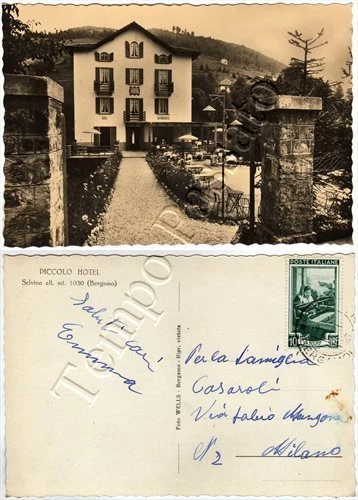 PICCOLO HOTEL
Selvino alt. mt. 1050 (Bergamo)
Saluti cari
Emma
Foto WELLS - Bergamo - Ripr. vietata
POSTE ITALIANE
10
Per la famiglia
Casaroli
Via Fabio Mangone
N 2
Milano
Tempo Passato